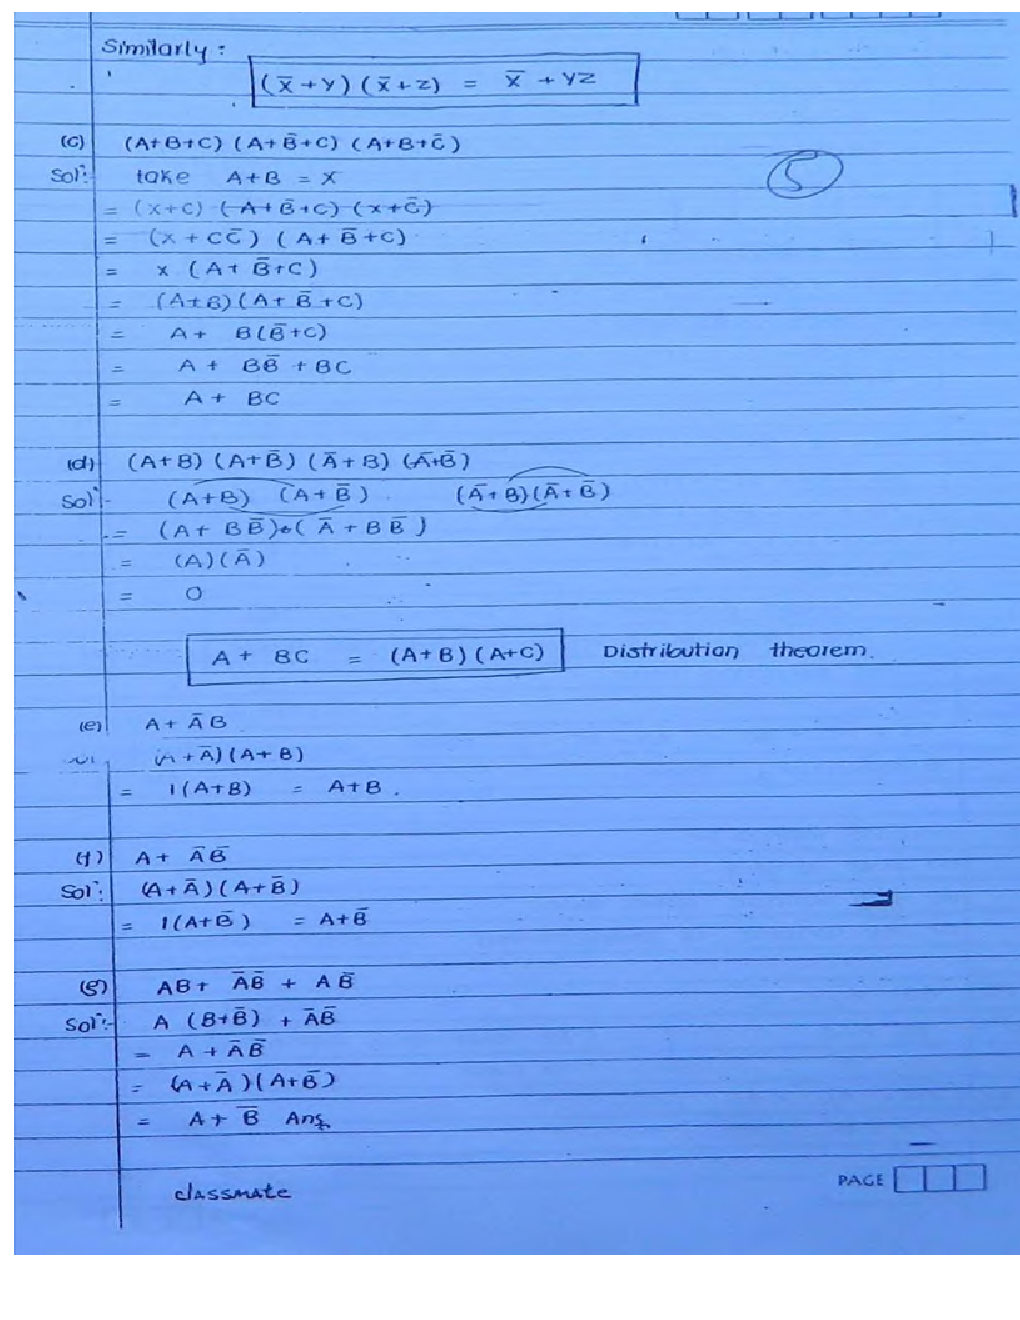 Similarly :
(X̄+Y) (X̄+Z) = X̄ + YZ
(C) (A+B+C) (A+B̄+C) (A+B+C̄)
Solⁿ: take A+B = X
5
= (X+C) (A+B̄+C) (X+C̄)
= (X + CC̄) (A+B̄+C)
= X (A+B̄+C)
= (A+B)(A+B̄+C)
= A+ B(B̄+C)
= A + BB̄ + BC
= A + BC
(d) (A+B) (A+B̄) (Ā+B) (Ā+B̄)
Solⁿ:- (A+B) (A+B̄) . (Ā+B)(Ā+B̄)
= (A+ BB̄)•(Ā + BB̄)
= (A)(Ā)
= 0
A+ BC = (A+B)(A+C) Distribution theorem.
(e) A+ ĀB
(A+Ā)(A+B)
= 1(A+B) = A+B.
(f) A+ ĀB̄
Solⁿ: (A+Ā)(A+B̄)
= 1(A+B̄) = A+B̄
(g) AB+ ĀB̄ + AB̄
Solⁿ:- A (B+B̄) + ĀB̄
= A + ĀB̄
= (A+Ā)(A+B̄)
= A+ B̄ Ans.
classmate
PAGE